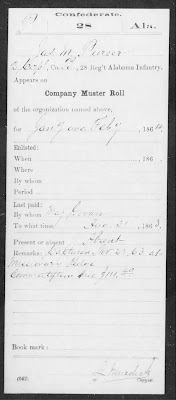 Confederate.
28 Ala.
Jas M. Purser
, 28 Reg't Alabama Infantry.
Appears on
Company Muster Roll
of the organization named above,
for Jan'y and Feby, 186
Enlisted:
When , 186 .
Where
By whom
Period
Last paid:
By whom Maj
To what time Aug 31, 1863.
Present or absent Absent
Remarks: Captured Nov 25, 63 at
Missionary Ridge
Commutation due
Book mark:
(642)